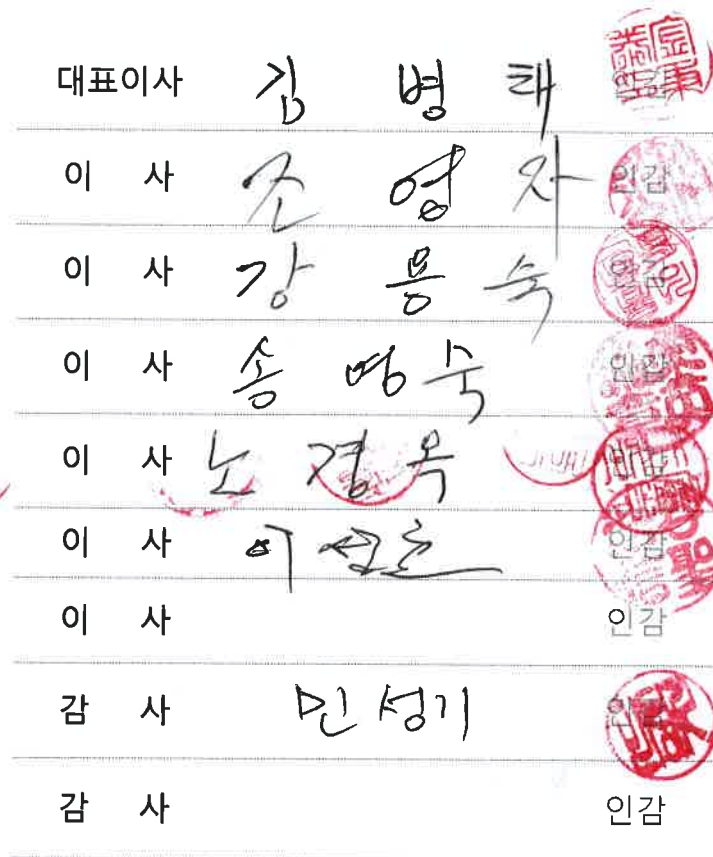 대표이사 김 병 태 인감
이 사 조 영 자 인감
이 사 강 용 숙 인감
이 사 송 영 숙 인감
이 사 노 경 옥 인감
이 사 이 인감
이 사 인감
감 사 민 성 기 인감
감 사 인감